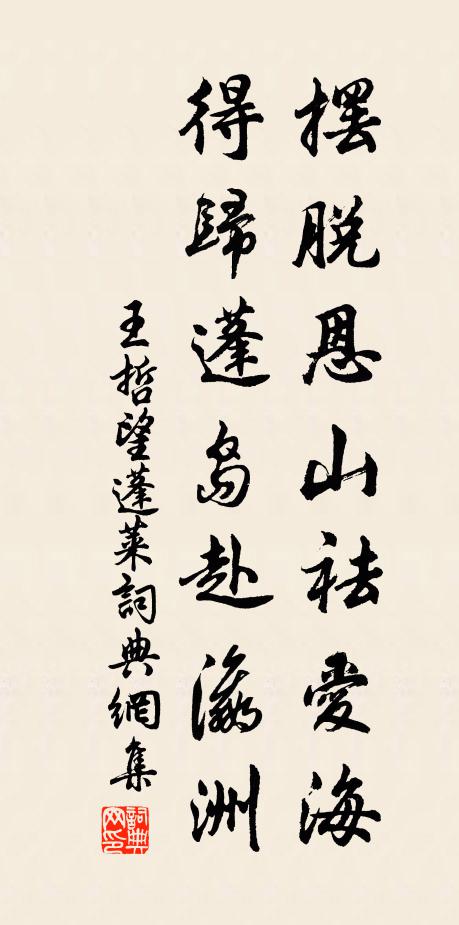 擺脫恩山袪愛海
得歸蓬島赴瀛洲
王哲望蓬萊詞典網集
詞典网印